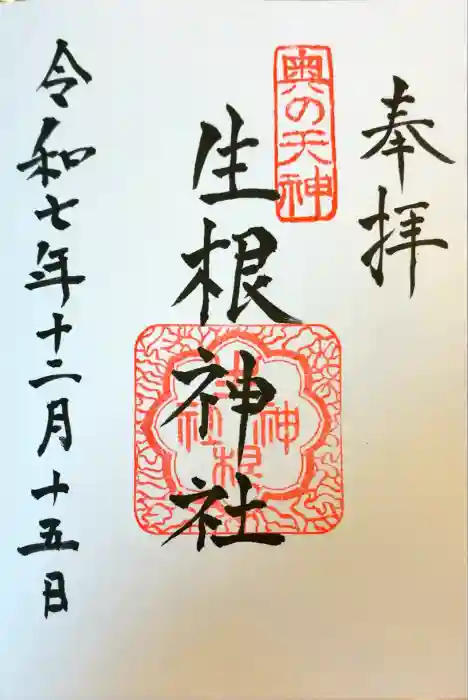 奉拝
奥の天神
生根神社
生根神社
令和七年十二月十五日